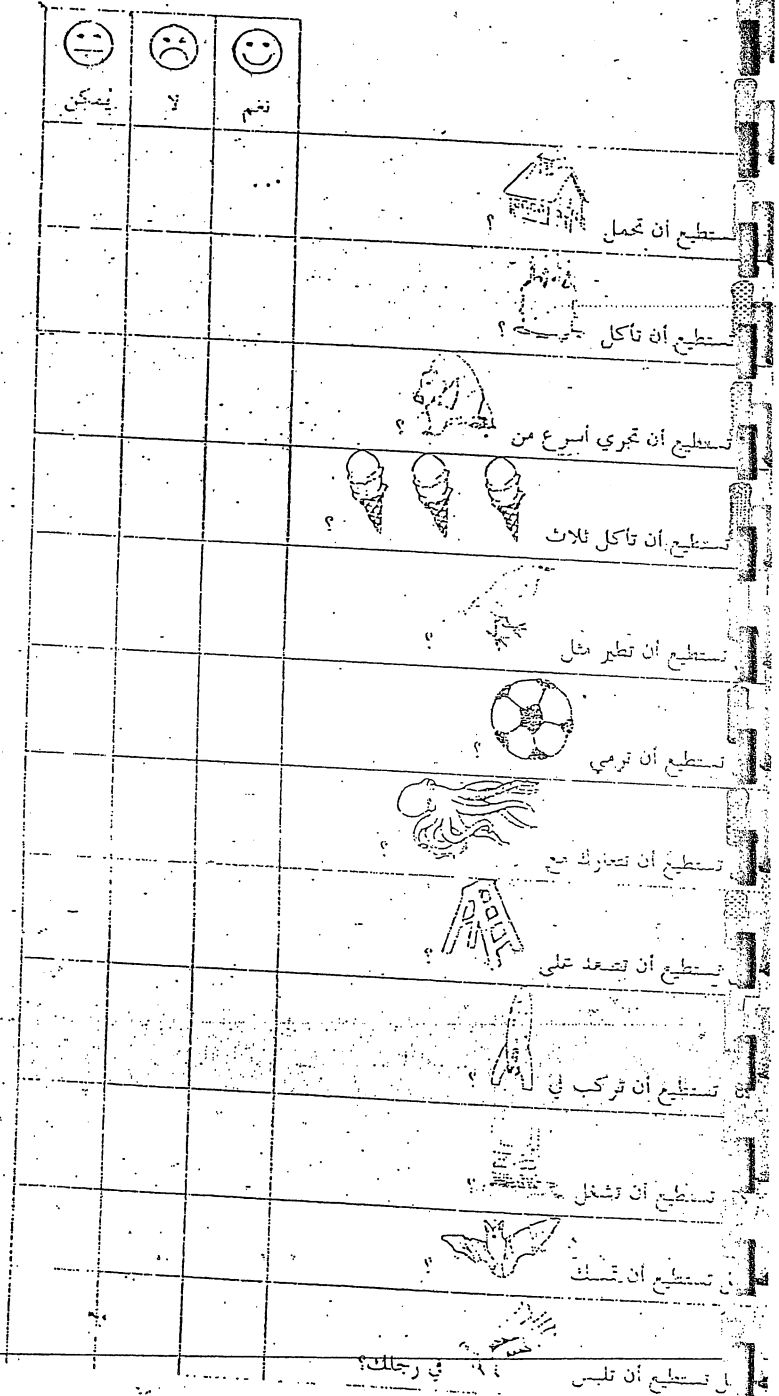 نعم لا يمكن
تستطيع أن تحمل ؟
تستطيع أن تأكل ؟
تستطيع أن تجري أسرع من ؟
تستطيع أن تأكل ثلاث ؟
تستطيع أن تطير مثل ؟
تستطيع أن ترمي ؟
تستطيع أن تتعارك مع ؟
تستطيع أن تصعد على ؟
تستطيع أن تركب في ؟
تستطيع أن تشغل ؟
تستطيع أن تمسك ؟
تستطيع أن تلبس في رجلك؟